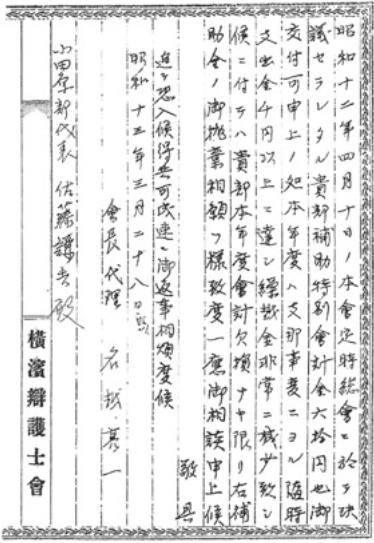 昭和十二年四月十日ノ本會定時総會ニ於テ決
議セラレタル貴部補助特別會計金六拾円也御
交付可申上ノ処本年度ハ支那事変ニヨル臨時
支出金千円以上ニ達シ繰越金非常ニ減少致シ
候ニ付テハ貴部本年度會計欠損ナキ限リ右補
助金ノ御抛棄相願フ様致度一應御相談申上候
敬具
追テ恐入候得共可成速ニ御返事相煩度候
昭和十三年三月二十八日
會長代理 名越亮一
小田原部代表 佐藤謙吉殿
横濱辯護士會